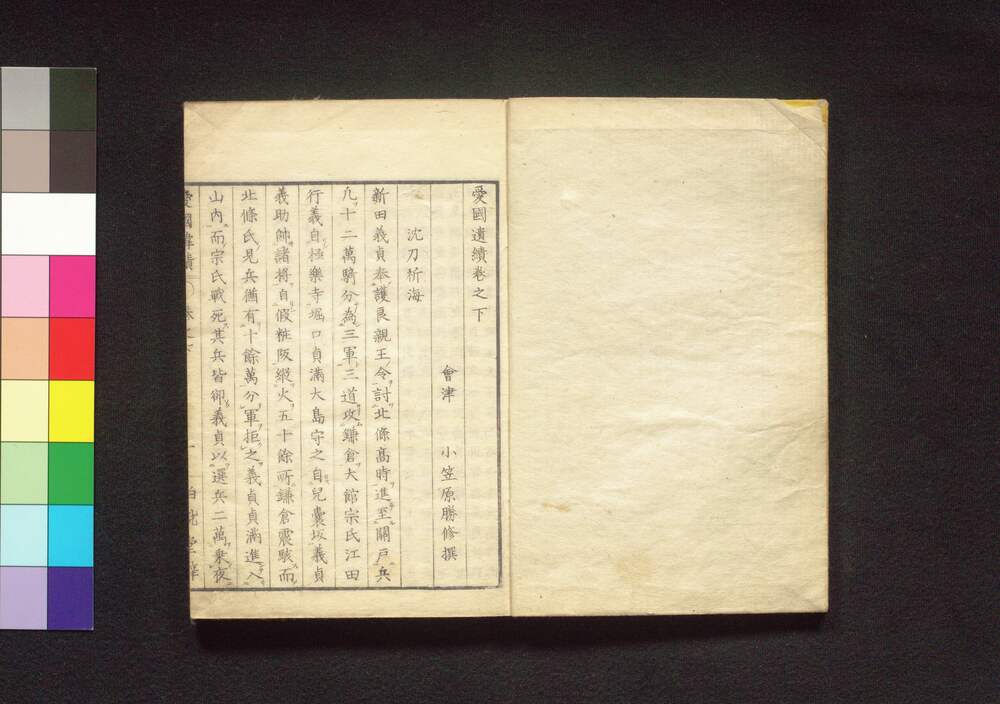 愛國遺績卷之下
會津 小笠原勝修撰
沈刀祈海
新田義貞奉護良親王令討北條高時進至關戸兵
九十二萬騎分為三軍三道攻鎌倉大館宗氏江田
行義自極樂寺堀口貞滿大島守之自兒囊坂義貞
義助帥諸將自假粧阪縱火五十餘所鎌倉震駭而
北條氏兵猶有十餘萬分軍拒之義貞貞滿進入
山內而宗氏戰死其兵皆卻義貞以選兵二萬乘夜
愛國遺績